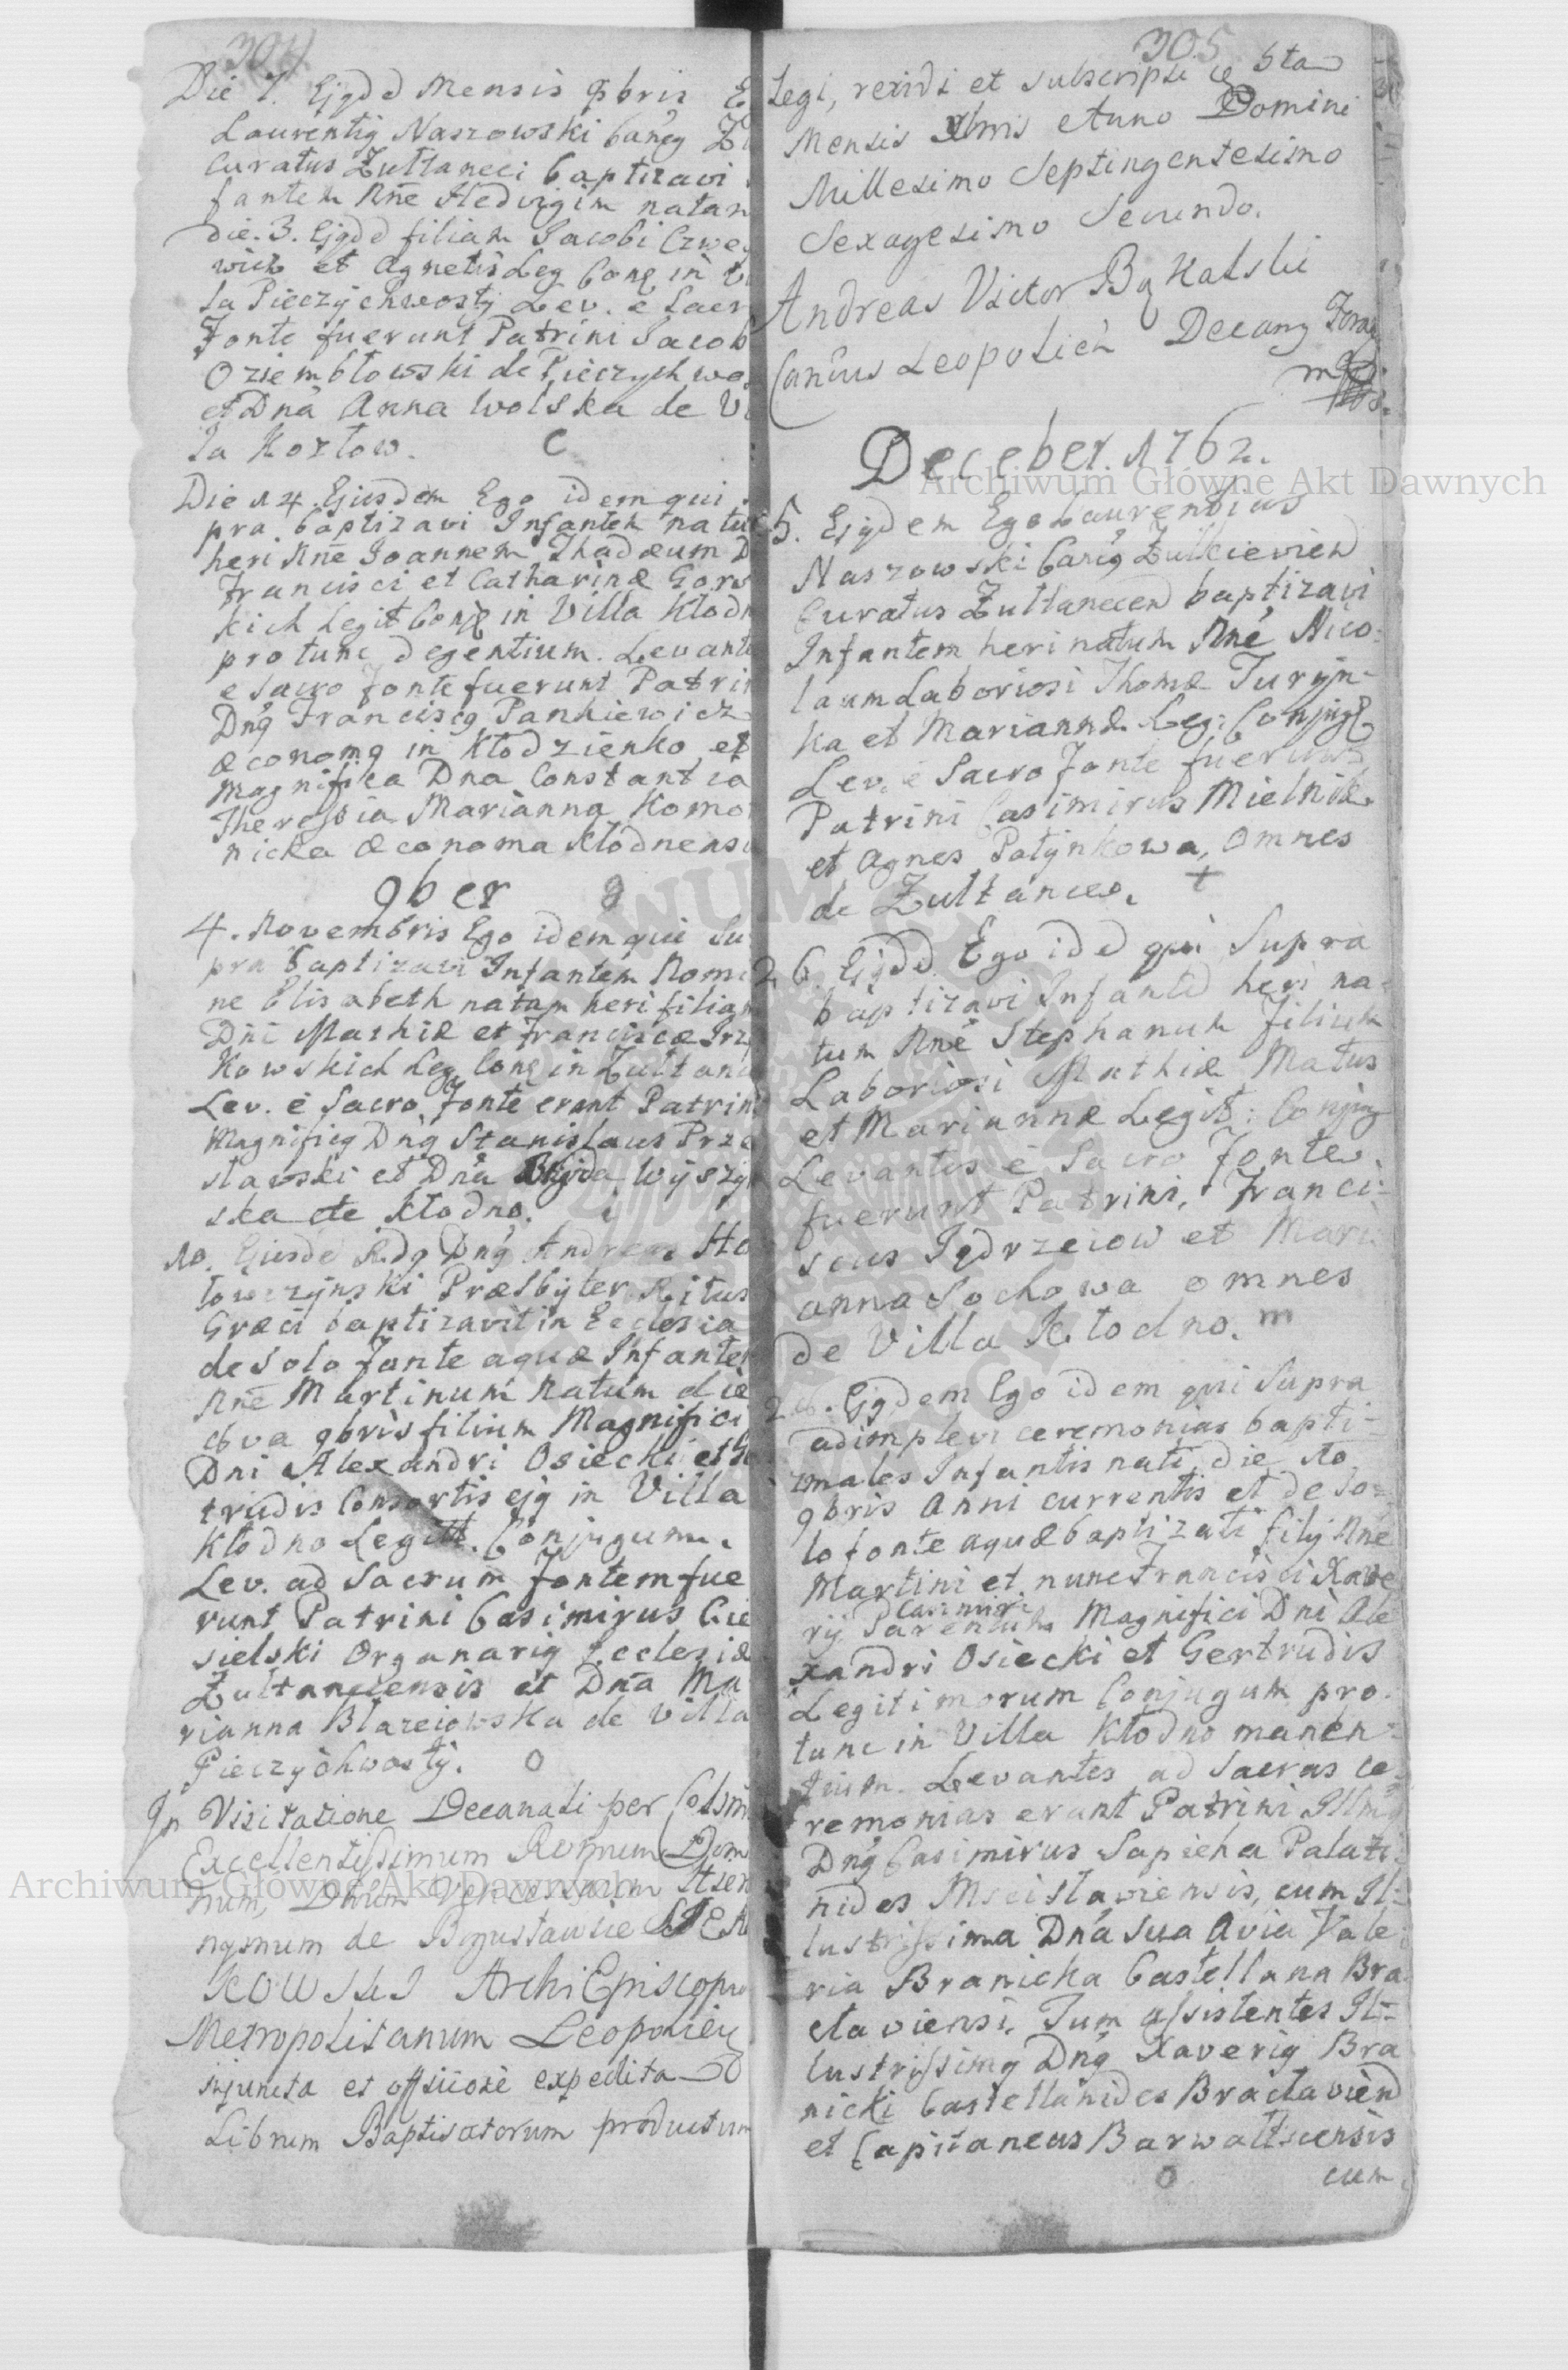 304.
Die 7. Ejqdd Mensis 8bris E
Laurentiq Naszowski Canoq Zu
Curatus Zułtaneci baptizavi
fantem Nñe Hedvigim natam
die. 3. Ejqdd filiam Jacobi Czwe
wick et Agnetis Leg Conq in Vi
la Pieczychwosty Lev. e Sacr
Fonte fuerunt Patrini Jacob
Oziembłowski de Pieczychwo
et Dna Anna Wolska de Vi
la Kozłow. C
Die 14. Ejusdem Ego idem qui
pra baptizavi Infantem natu
heri Nñe Joannem Thadæum D
Francisci et Catharinæ Gors
kich Legit Conq in Villa Kłodn
protunc degentium. Levante
e Sacro fonte fuerunt Patrin
Dnq Franciscq Pankiewicz
æconomq in Kłodzienko et
magnifica Dna Constantia
Theressia Marianna Komo
nicka æconoma Kłodnensi
9ber
4. Novembris Ego idem qui Su
pra baptizavi Infantem Nomi
ne Elisabeth natam heri filiam
Dni Mathiæ et Franciscæ Irz
kowskich Leg Conq in Zułtanc
Lev. e Sacro Fonte erant Patrini
Magnificq Dnq Stanislaus Prze
sławski et Dna Wyszy
ska de Kłodno.
10. Ejusde Rdq Dnq Andreas Ho
łowczynski Præsbyter Ritus
Græci baptizavit in Ecclesia
de solo fonte aquæ Infantem
Nñe Martinum natum die
8va 9bris filium Magnifici
Dni Alexandri Osiecki et Ge
trudis Consortis ejq in Villa
Kłodno Legitt. Conjugum.
Lev. ad Sacrum fontem fue
runt Patrini Casimirus Cie
sielski Organariq Ecclesiæ
Zułtancensis et Dna Ma
rianna Błazeiowska de Villa
Pieczychwosty. O
In Visitatione Decanali per Celsm
Excellentissimum Rdmum Dom
num, Dnum Venceslaum Hier
nymum de Bogusławice SIERA
KOWSKI ArchiEpiscopu
Metropolitanum Leopolien
injuncta et officiose expedita
Librum Baptisatorum productum
305
Legi, revidi et subscripsi die 5ta
Mensis Xbris Anno Domini
Millesimo Septingentesimo
Sexagesimo Secundo.
Andreas Victor Bąkalski
Canōus Leopolień Decanq Foran
mp
Deceber. 1762.
5. Ejqdem Ego Laurentius
Naszowski Canoq Zułkieviend
Curatus Zułtanecend baptizavi
Infantem heri natum Nñe Nico=
laum Laboriosi Thomæ Turyn-
ka et Mariannæ Leg: Conjugq
Lev. e Sacro fonte fuerunt
Patrini Casimirus Mielnik
et Agnes Patynkowa, omnes
de Zułtance. +
26. Ejqdd Ego idd qui Supra
baptizavi Infantd heri na=
tum Nñe Stephanum filium
Laboriosi Mathiæ Matus
et Mariannæ Legit: Conjug
Levantes e Sacro fonte
fuerunt Patrini, Franci=
scus Jędrzeiow et Mari
anna Sochowa omnes
de Villa Kłodno. m
26. Ejqdem Ego idem qui Supra
adimplevi ceremonias bapti=
zmales Infantis nati die 10
9bris Anni currentis et de so=
lo fonte aquæ baptizati filij Nñe
Martini et nunc Francisci Xave
rij Casimiri Parentum Magnifici Dni Ale
xandri Osiecki et Gertrudis
Legitimorum Conjugum pro.
tunc in Villa Kłodno manen=
tium. Levantes ad Sacras ce=
remonias erant Patrini Illmq
Dnq Casimirus Sapieha Palati=
nides Mscisłaviensis, cum Il=
lustrissima Dna sua Avia Vale=
ria Branicka Castellana Bra
claviensi. Tum assistentes Il=
lustrissimq Dnq Xaveriq Bra
nicki Castellanides Braclaviend
et Capitaneus Barwałtsiensis
cum
Archiwum Główne Akt Dawnych
Archiwum Główne Akt Dawnych